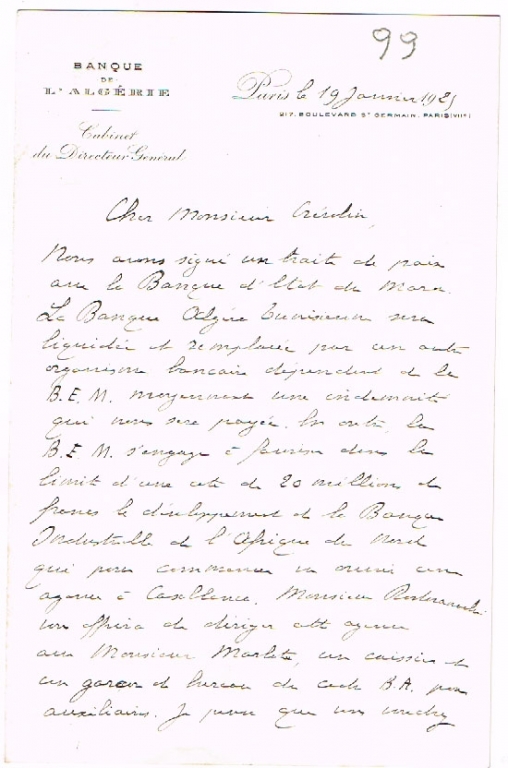 99
BANQUE
DE
L'ALGÉRIE
Paris le 19 Janvier 1925
217, BOULEVARD St GERMAIN, PARIS (VIIe)
Cabinet
du Directeur Général
Cher Monsieur
Nous avons signé un traité de paix
avec la Banque d'Etat du Maroc.
La Banque Algéro Tunisienne sera
liquidée et remplacée par un autre
organisme bancaire dépendant de la
B.E.M. moyennant une indemnité
qui nous sera payée. En outre, la
B.E.M. s'engage à favoriser dans la
limite d'une cote de 20 millions de
francs le développement de la Banque
Industrielle de l'Afrique du Nord
qui pour commencer va ouvrir une
agence à Casablanca. Monsieur
vous offrira de diriger cette agence
avec Monsieur un caissier et
un garçon de bureau du cadre B.A. pour
auxiliaires. Je pense que vous